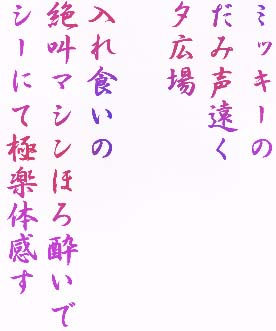 ミッキーの
だみ声遠く
夕広場
入れ食いの
絶叫マシンほろ酔いで
シーにて極楽体感す